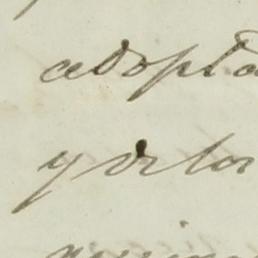 adopta
y de los